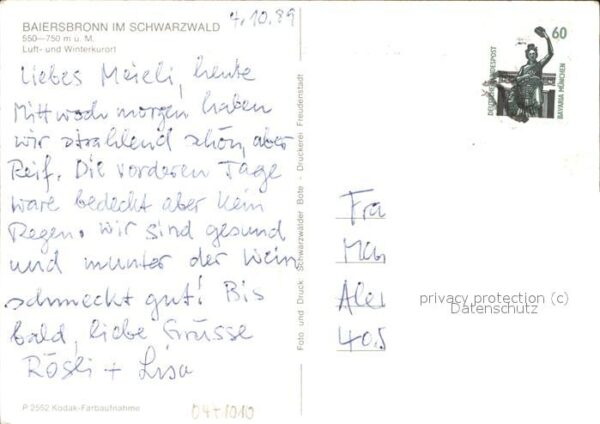 4.10.89
BAIERSBRONN IM SCHWARZWALD
550—750 m ü. M.
Luft- und Winterkurort
Liebes Meieli, heute
Mittwoch morgen haben
wir strahlend schön, aber
Reif. Die vorderen Tage
ware bedeckt aber kein
Regen. Wir sind gesund
und munter der Wein
schmeckt gut! Bis
bald, liebe Grüsse
Rösli + Lisa
P 2552 Kodak-Farbaufnahme
04+1010
Foto und Druck Schwarzwälder Bote - Druckerei Freudenstadt
60
DEUTSCHE BUNDESPOST
BAVARIA MÜNCHEN
Fra
Ale
405
privacy protection (c)
Datenschutz